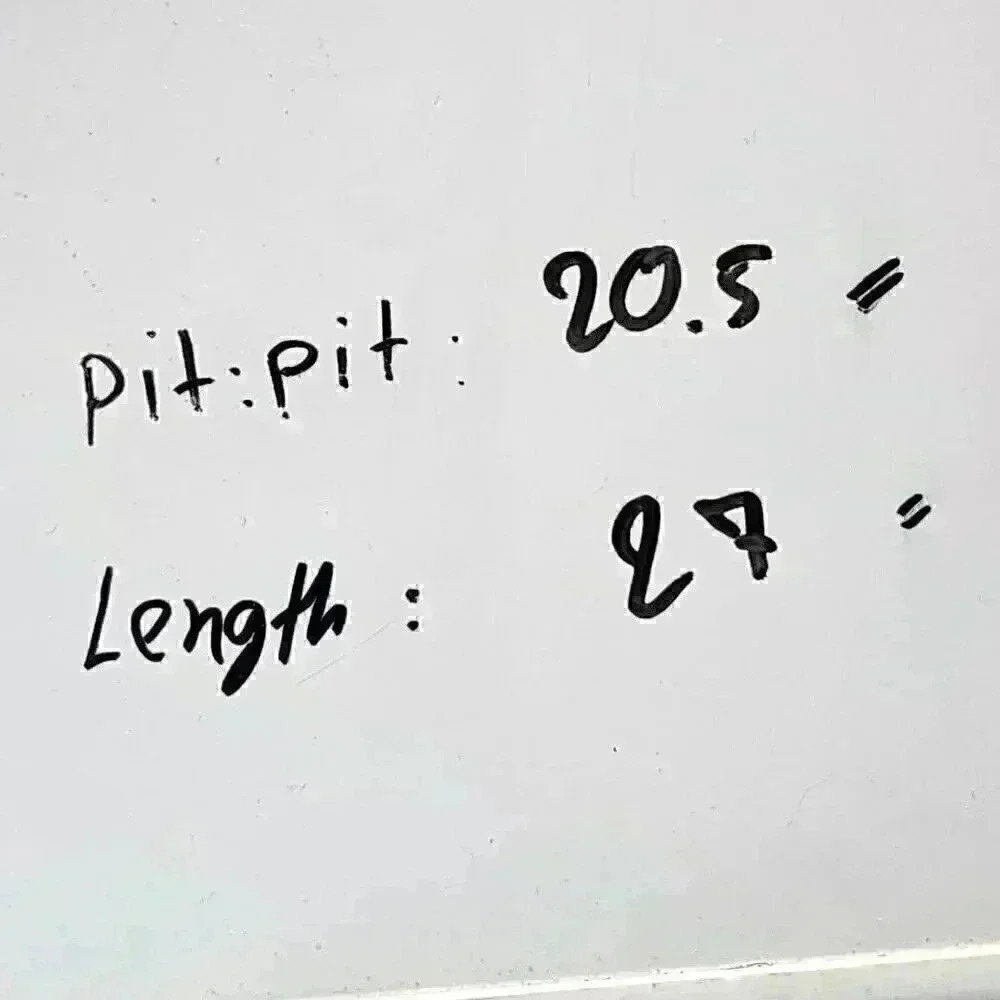 pit:pit: 20.5 "
Length: 27 "